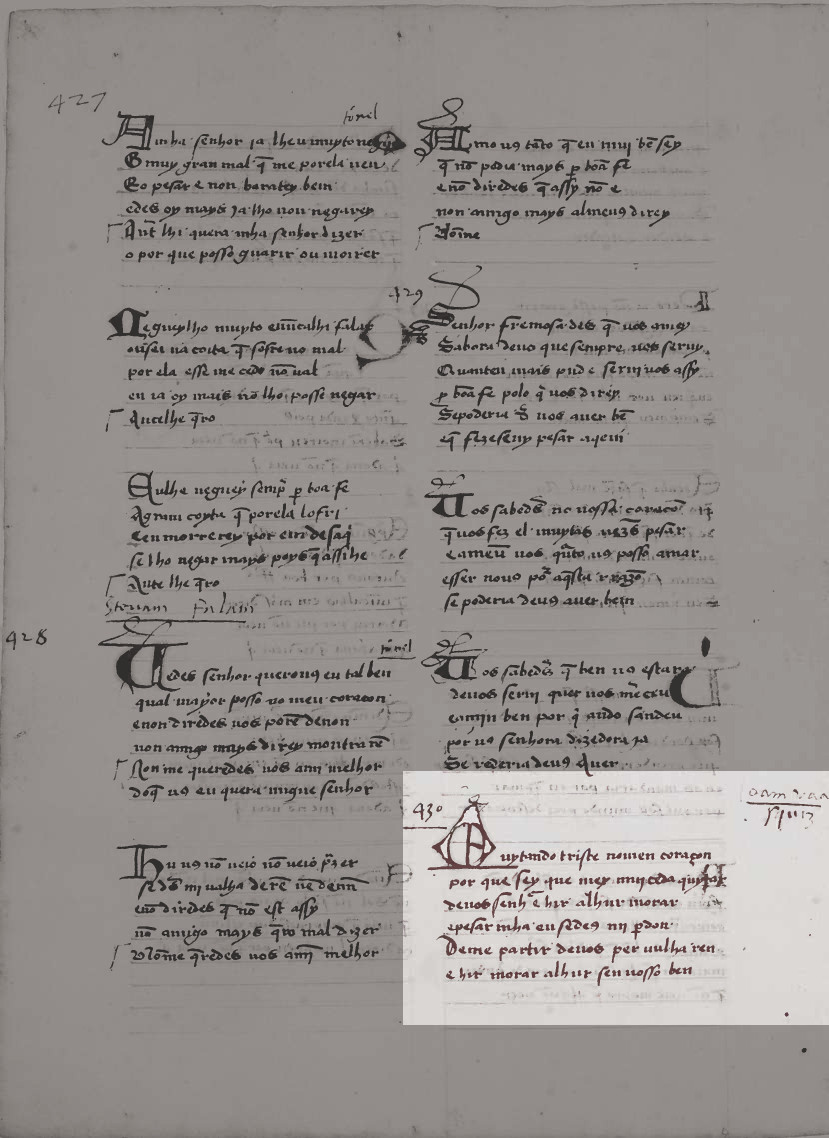 427
tornel
Minha senhor ia lheu muyto neguey
O muy gran mal q̄ me por ela ven
Eo pesar e non baratey ben
edes oy mays ia lho non negarey
Ant̄ lhi quera mha senhor dizer
o por que posso guarir ou moirer
Negueylho muyto e nūcalhi falar
ousei na coita q̄ sofre no mal
por ela esse me cedo nō val
en ia oy mais nō lho posso negar
Antelhe q̄ro
Eulhe neguey semp̄ p boa fe
Agram coyta q̄ por ela sofri
Eeu morrerey por em desaqi
se lho negar mays poys q̄ assi he
Ante lhe q̄ro
Stevam Falam
428
tornel
Vedes senhor querovꝯ eu tal ben
qual mayor posso no meu coraçon
enon diredes vos porē de non
non amigo mays direy
Non me queredes vos a mī melhor
do q̄ vꝯ eu quera migue senhor
Hu vꝯ nō veio nō veio p̄zer
se dꝯ mi valha
enō diredes q̄ nō est assy
nō amigo mays q̄ro mal dizer
Nōme q̄redes vos amī melhor
Amo vꝯ tāto q̄ eu mui bē sey
q̄ nō podia mays p bōa fe
enō diredes q̄ assy nō e
non amigo mays al meuꝯ direy
Nōme
429
Senhor fremosa des q̄ vos amey
Sabora deus que sempre vos servy
Quanteu mais pud e servi vos assy
p bōa fe polo q̄ vos direy
Sepoderia vos aver bē
eq̄ fezese vy pesar a q̄ vi
Vos sabedꝯ no vosso coraçō
q̄ vos fez el muytas vezꝯ pesar
e ameu vos q̄nto vꝯ posso amar
esser novꝯ por aq̄sta razō
se poderia deus aver ben
Vos sabedꝯ q̄ ben vꝯ estara
devos servi quer vos mēceu
eamin ben por q̄ ando sandeu
por vꝯ senhora dizedora ia
Se poderia deus aver
430
Quytando triste no meu coraçon
por que sey que mey mui ceda quytar
devos senhor e hir alhur morar
epesar mha eu sedeꝯ mi pdon
De me partir devos per nulha ren
e hir morar alhur sen vosso ben